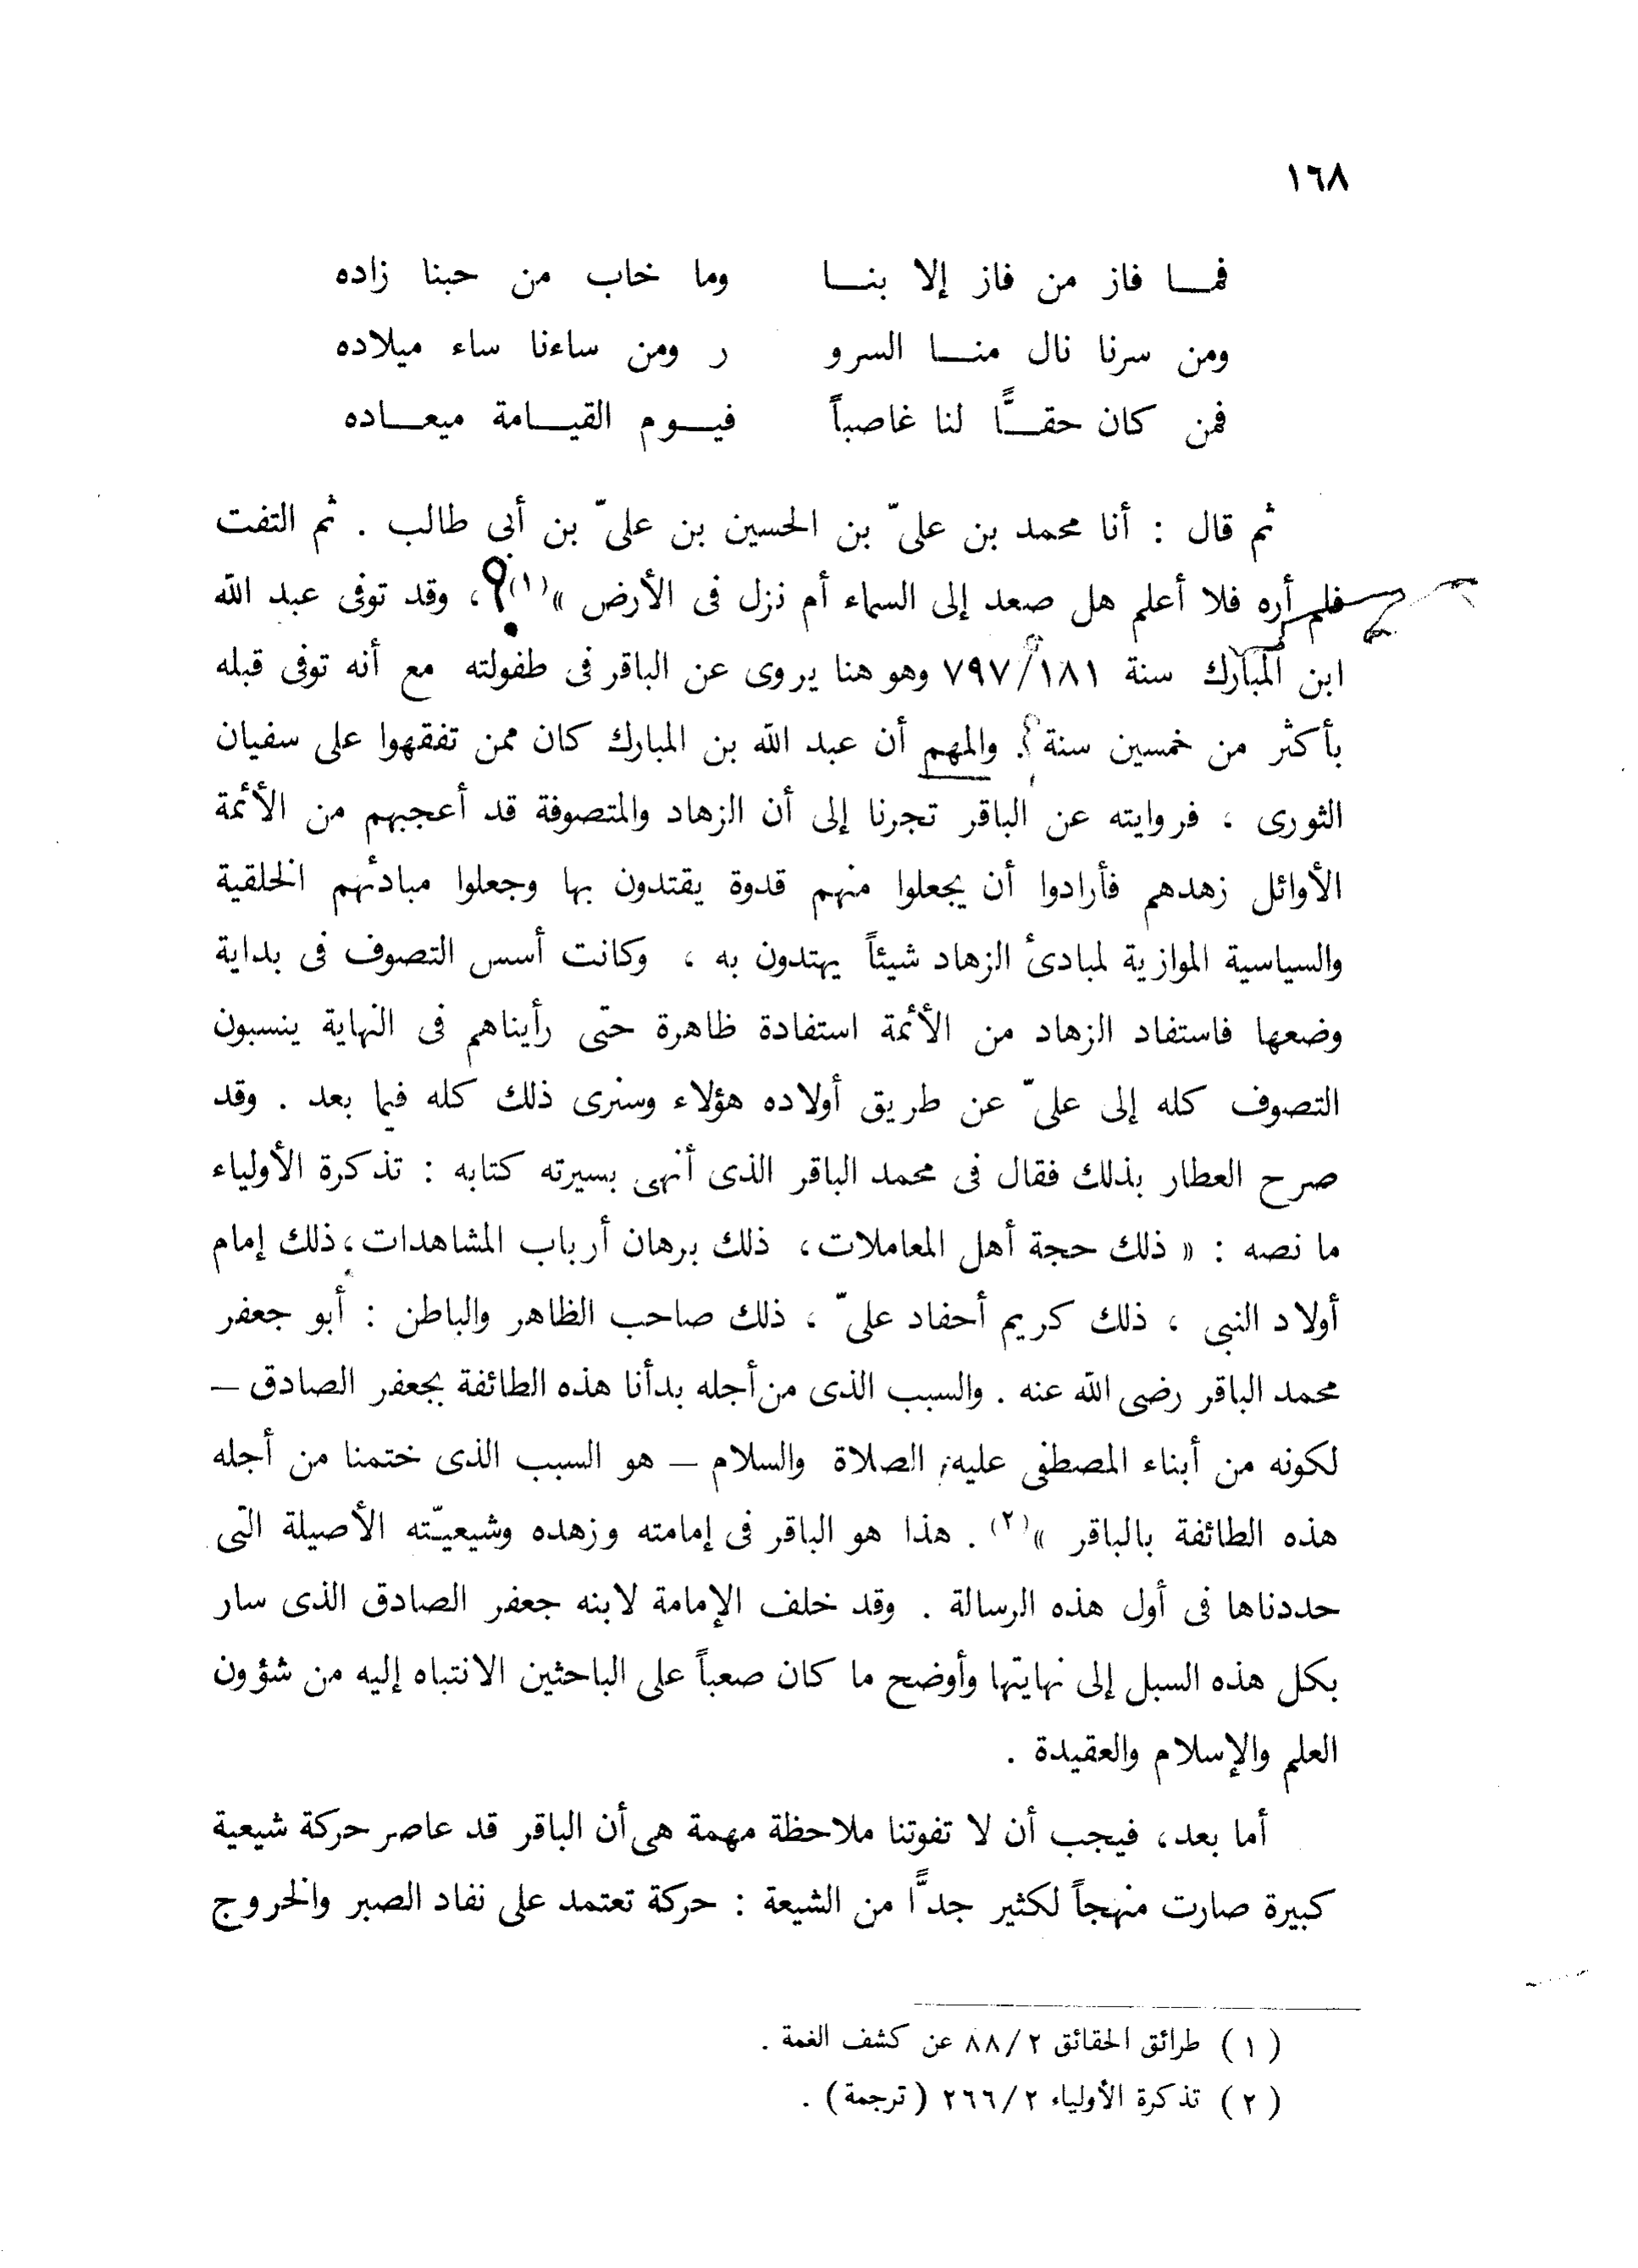 ١٦٨
فمـــا فاز من فاز إلا بنـــا وما خاب من حبنا زاده
ومن سرنا نال منـــا السرو ر ومن ساءنا ساء ميلاده
فمن كان حقـــًّا لنا غاصباً فيـــوم القيـــامة ميعـــاده
ثم قال : أنا محمد بن علىّ بن الحسين بن علىّ بن أبى طالب . ثم التفت
فلم أره فلا أعلم هل صعد إلى السماء أم نزل فى الأرض »(١)؟، وقد توفى عبد الله
ابن المبارك سنة ٧٩٧/١٨١ وهو هنا يروى عن الباقر فى طفولته مع أنه توفى قبله
بأكثر من خمسين سنة؟. والمهم أن عبد الله بن المبارك كان ممن تفقهوا على سفيان
الثورى ، فروايته عن الباقر تجرنا إلى أن الزهاد والمتصوفة قد أعجبهم من الأئمة
الأوائل زهدهم فأرادوا أن يجعلوا منهم قدوة يقتدون بها وجعلوا مبادئهم الخلقية
والسياسية الموازية لمبادئ الزهاد شيئاً يهتدون به ، وكانت أسس التصوف فى بداية
وضعها فاستفاد الزهاد من الأئمة استفادة ظاهرة حتى رأيناهم فى النهاية ينسبون
التصوف كله إلى علىّ عن طريق أولاده هؤلاء وسنرى ذلك كله فيما بعد . وقد
صرح العطار بذلك فقال فى محمد الباقر الذى أنهى بسيرته كتابه : تذكرة الأولياء
ما نصه : « ذلك حجة أهل المعاملات، ذلك برهان أرباب المشاهدات، ذلك إمام
أولاد النبى ، ذلك كريم أحفاد علىّ ، ذلك صاحب الظاهر والباطن : أبو جعفر
محمد الباقر رضى الله عنه . والسبب الذى من أجله بدأنا هذه الطائفة بجعفر الصادق –
لكونه من أبناء المصطفى عليه الصلاة والسلام – هو السبب الذى ختمنا من أجله
هذه الطائفة بالباقر »(٢) . هذا هو الباقر فى إمامته وزهده وشيعيـّته الأصيلة التى
حددناها فى أول هذه الرسالة . وقد خلف الإمامة لابنه جعفر الصادق الذى سار
بكل هذه السبل إلى نهايتها وأوضح ما كان صعباً على الباحثين الانتباه إليه من شؤون
العلم والإسلام والعقيدة .
أما بعد، فيجب أن لا تفوتنا ملاحظة مهمة هى أن الباقر قد عاصر حركة شيعية
كبيرة صارت منهجاً لكثير جدًّا من الشيعة : حركة تعتمد على نفاد الصبر والخروج
( ١ ) طرائق الحقائق ٨٨/٢ عن كشف الغمة .
( ٢ ) تذكرة الأولياء ٢٦٦/٢ (ترجمة) .